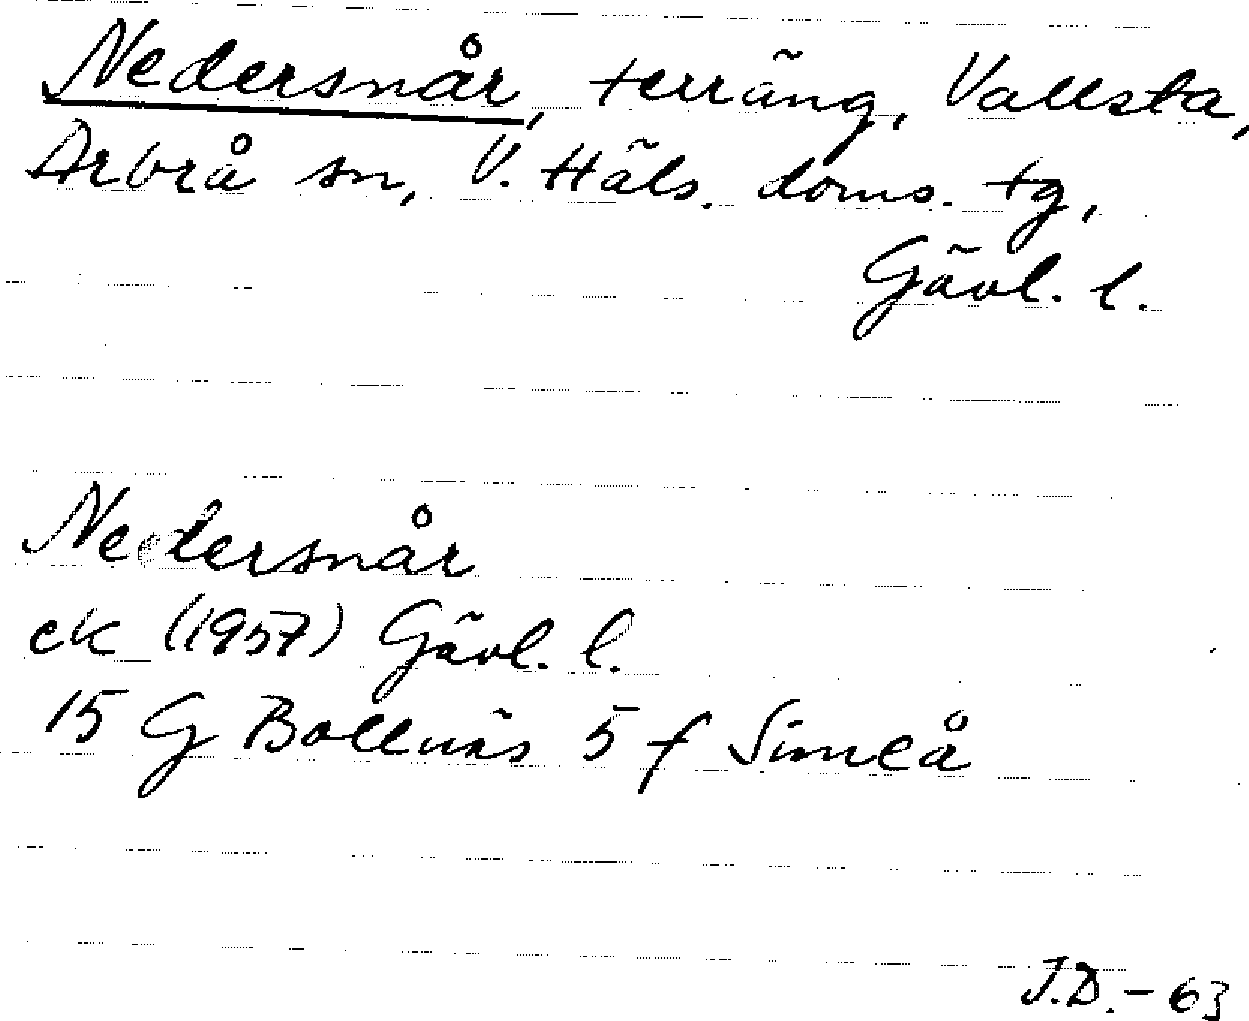 Nedersnår, terräng, Vallsta,
Arbrå sn, V. Häls. doms. tg,
Gävl. l.
Nedersnår
ek (1957) Gävl. l.
15 G Bollnäs 5 f Simeå
J.D. - 63